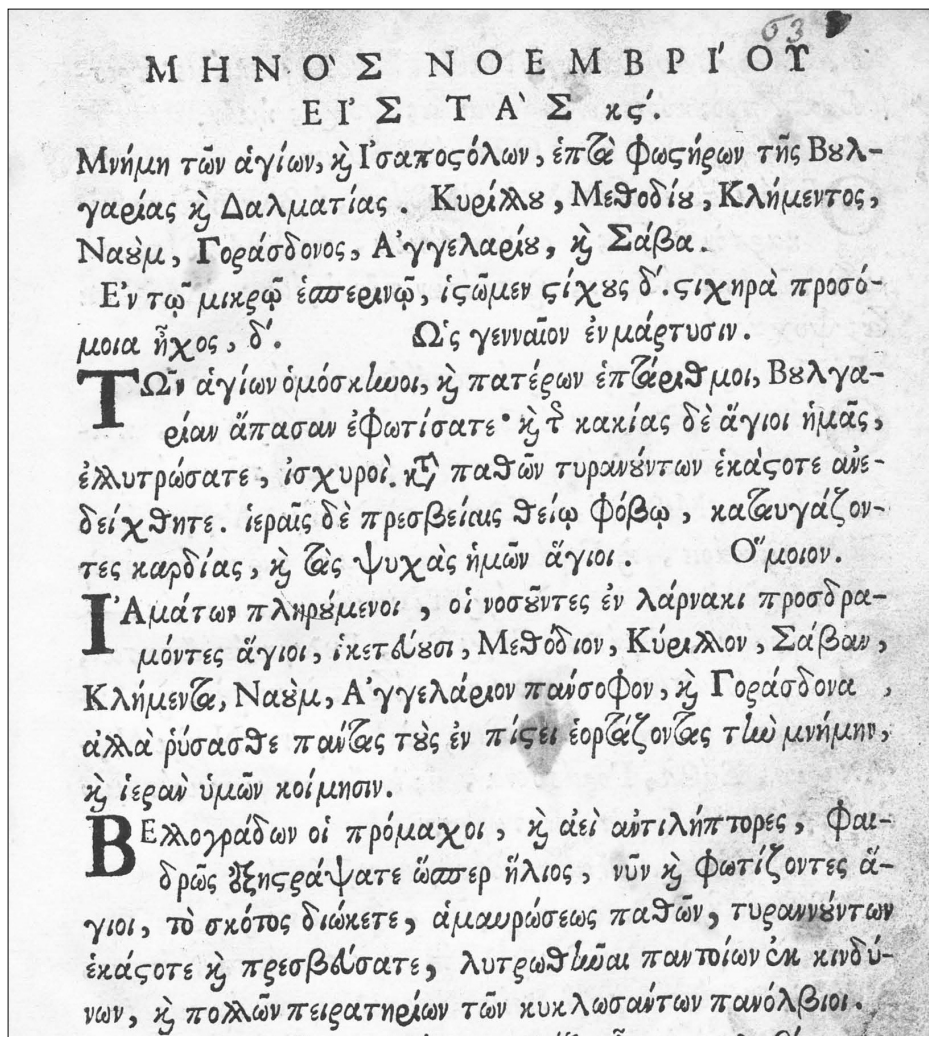 63
ΜΗΝΟ`Σ ΝΟΕΜΒΡΙ´ΟΥ
ΕΙ᾿Σ ΤΑ`Σ κϛ´.
Μνήμη τῶν ἁγίων, ϗ Ι᾿σαποϛόλων, ἑπτὰ φωϛήρων τῆς Βȣλ-
γαρίας ϗ Δαλματίας. Κυρίλλȣ, Μεθοδίȣ, Κλήμεντος,
Ναȣ̀μ, Γοράσδονος, Α᾿γγελαρίȣ, ϗ Σάβα.
Ε᾿ν τῷ μικρῷ ἑσπερινῷ, ἱϛῶμεν ϛίχȣς δ´. ϛιχηρὰ προσό-
μοια ἦχος, δ´. Ω῾ς γενναῖον ἐν μάρτυσιν.
ΤΩ῀ν ἁγίων ὁμόσκηνοι, ϗ πατέρων ἑπτάριθμοι, Βȣλγα-
ρίαν ἅπασαν ἐφωτίσατε· ϗ τ῀ κακίας δὲ ἅγιοι ἡμᾶς,
ἐλλυτρώσατε, ἰσχυροὶ. κτ῀ παθῶν τυρανȣ́ντων ἑκάϛοτε ἀνε-
δείχθητε. ἱεραῖς δὲ πρεσβείαις θείῳ φόβῳ, καταυγάζον-
τες καρδίας, ϗ τὰς ψυχὰς ἡμῶν ἅγιοι. Ο῞μοιον.
Ι᾿Αμάτων πληρȣ́μενοι, οἱ νοσȣ͂ντες ἐν λάρνακι προσδρα-
μόντες ἅγιοι, ἱκετεύȣσι, Μεθόδιον, Κύριλλον, Σάβαν,
Κλήμεντα, Ναȣ̀μ, Α᾿γγελάριον πάνσοφον, ϗ Γοράσδονα,
ἀλλὰ ῥύσασθε πάντας τȣ̀ς ἐν πίϛει ἑορτάζοντας τὴν μνήμην,
ϗ ἱερὰν ὑμῶν κοίμησιν.
ΒΕλλογράδων οἱ πρόμαχοι, ϗ ἀεὶ ἀντιλήπτορες, φαι-
δρῶς ἐξηϛράψατε ὥσπερ ἥλιος, νῦν ϗ φωτίζοντες ἅ-
γιοι, τὸ σκότος διώκετε, ἀμαυρώσεως παθῶν, τυραννȣ́ντων
ἑκάϛοτε ϗ πρεσβεύσατε, λυτρωθῆναι παντοίων ἐκ κινδύ-
νων, ϗ πολλῶν πειρατηρίων τῶν κυκλωσάντων πανόλβιοι.